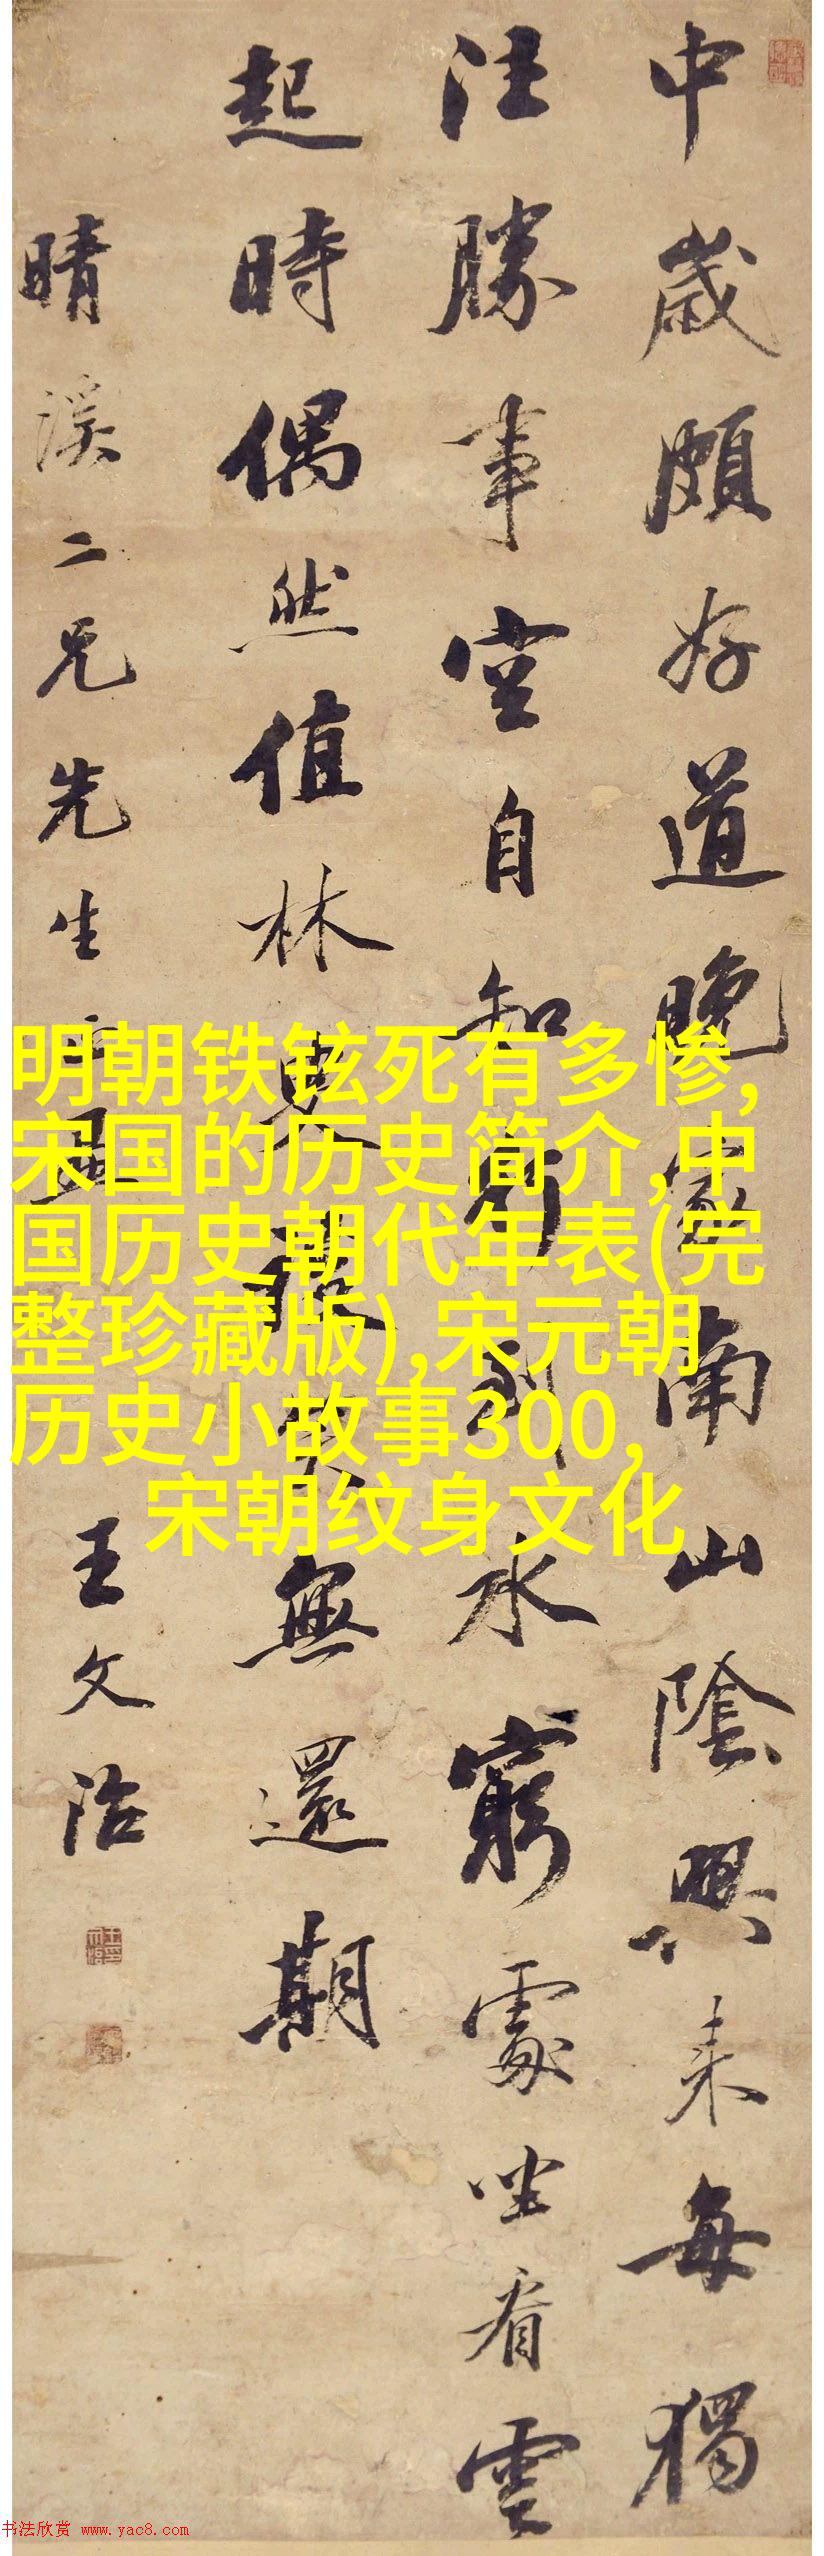 中歲頗好道晚家南山陰興來每獨
往勝事空自知行到水窮處坐看雲
起時偶然值林叟談笑無還期
晴溪二兄先生
王文治
明朝铁铉死有多惨,
宋国的历史简介,中
国历史朝代年表(完
整珍藏版),宋元朝
历史小故事300,
宋朝纹身文化
书法欣赏 www.yac8.com